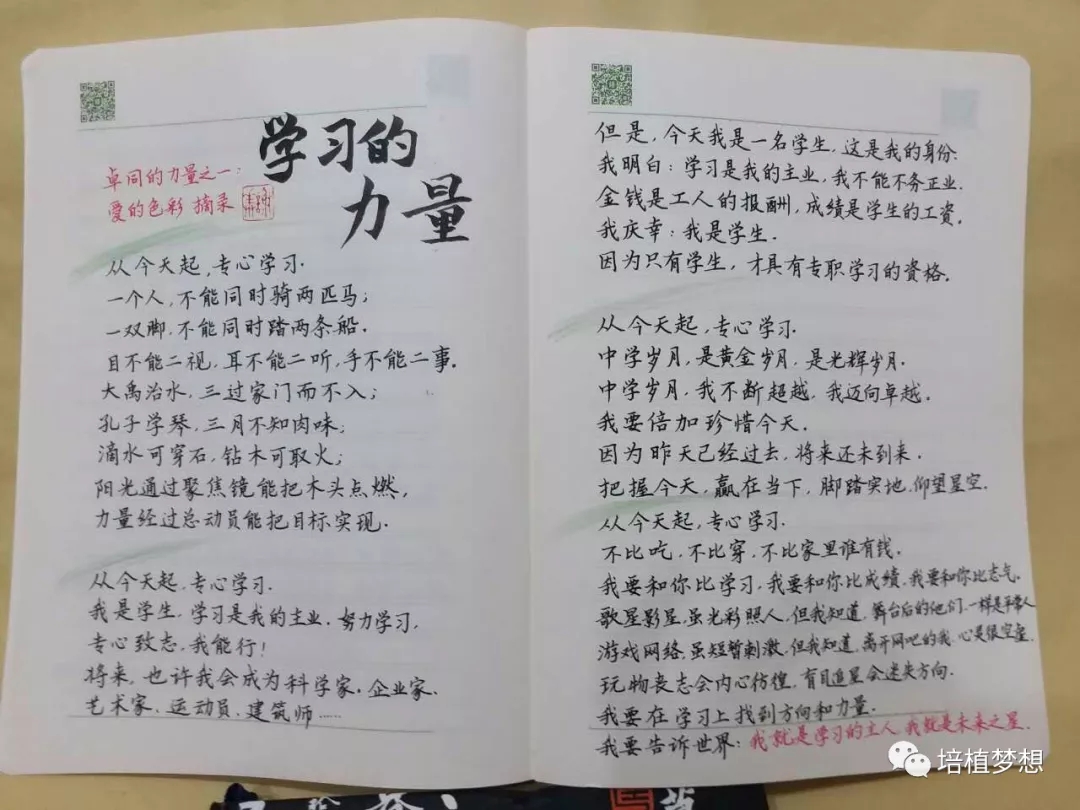 学习的
力量
卓同的力量之一:
爱的色彩 摘录
从今天起,专心学习.
一个人,不能同时骑两匹马;
一双脚,不能同时踏两条船.
目不能二视,耳不能二听,手不能二事.
大禹治水,三过家门而不入;
孔子学琴,三月不知肉味;
滴水可穿石,钻木可取火;
阳光通过聚焦镜能把木头点燃,
力量经过总动员能把目标实现.
从今天起,专心学习.
我是学生,学习是我的主业.努力学习,
专心致志,我能行!
将来,也许我会成为科学家、企业家、
艺术家、运动员、建筑师……
但是,今天我是一名学生,这是我的身份.
我明白:学习是我的主业,我不能不务正业.
金钱是工人的报酬,成绩是学生的工资.
我庆幸:我是学生.
因为只有学生,才具有专职学习的资格.
从今天起,专心学习.
中学岁月,是黄金岁月,是光辉岁月.
中学岁月,我不断超越,我迈向卓越.
我要倍加珍惜今天.
因为昨天已经过去,将来还未到来.
把握今天,赢在当下,脚踏实地,仰望星空.
从今天起,专心学习.
不比吃,不比穿,不比家里谁有钱.
我要和你比学习,我要和你比成绩,我要和你比志气.
歌星影星,虽光彩照人,但我知道,舞台后的他们,一样是平常人
游戏网络,虽短暂刺激,但我知道,离开网吧的我,心灵很空虚.
玩物丧志会内心彷徨,盲目追星会迷失方向.
我要在学习上找到方向和力量.
我要告诉世界:我就是学习的主人,我就是未来之星.
培植梦想